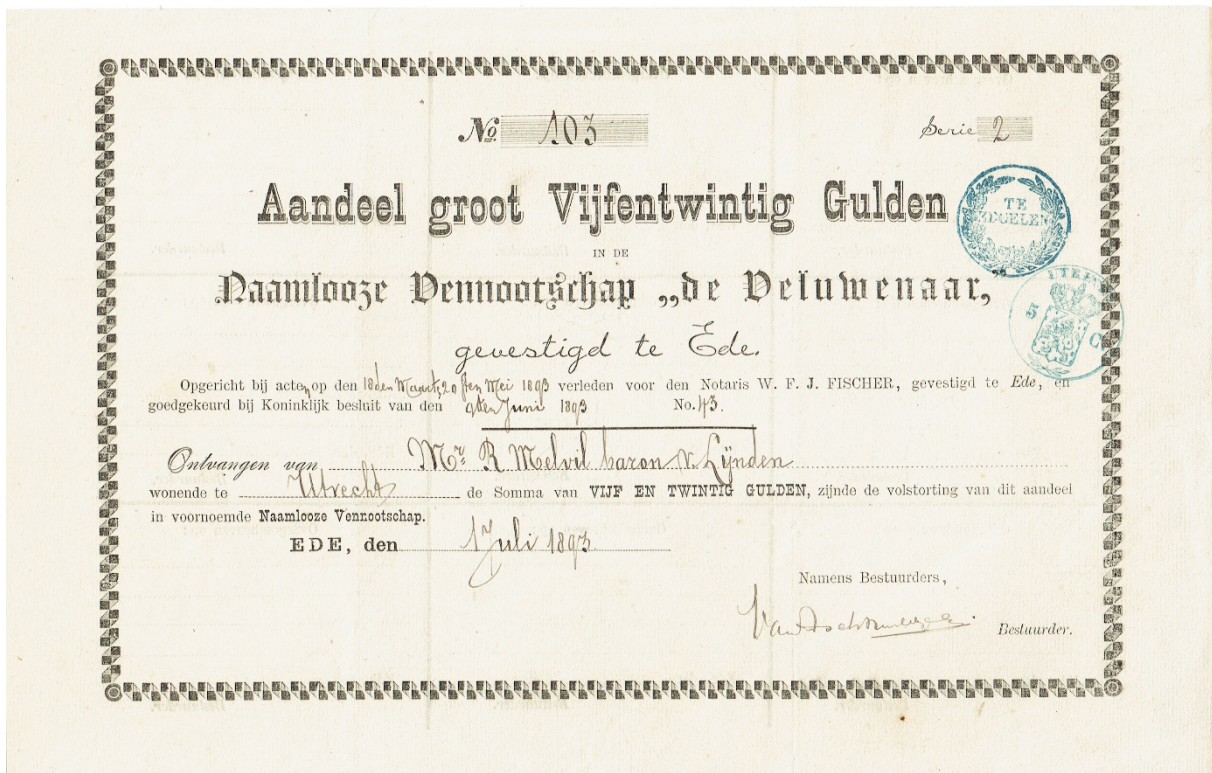 No 103 Serie 2
Aandeel groot Vijfentwintig Gulden
IN DE
Naamlooze Vennootschap „de Veluwenaar,”
gevestigd te Ede.
Opgericht bij acten op den 18den Maart, 20sten Mei 1893 verleden voor den Notaris W. F. J. FISCHER, gevestigd te Ede, en
goedgekeurd bij Koninklijk besluit van den 9den Juni 1893 No. 43.
Ontvangen van Mr. R Melvil baron v. Lÿnden
wonende te Utrecht de Somma van VIJF EN TWINTIG GULDEN, zijnde de volstorting van dit aandeel
in voornoemde Naamlooze Vennootschap.
EDE, den 1 Juli 1893.
Namens Bestuurders,
Bestuurder.
TE
ZEGELEN